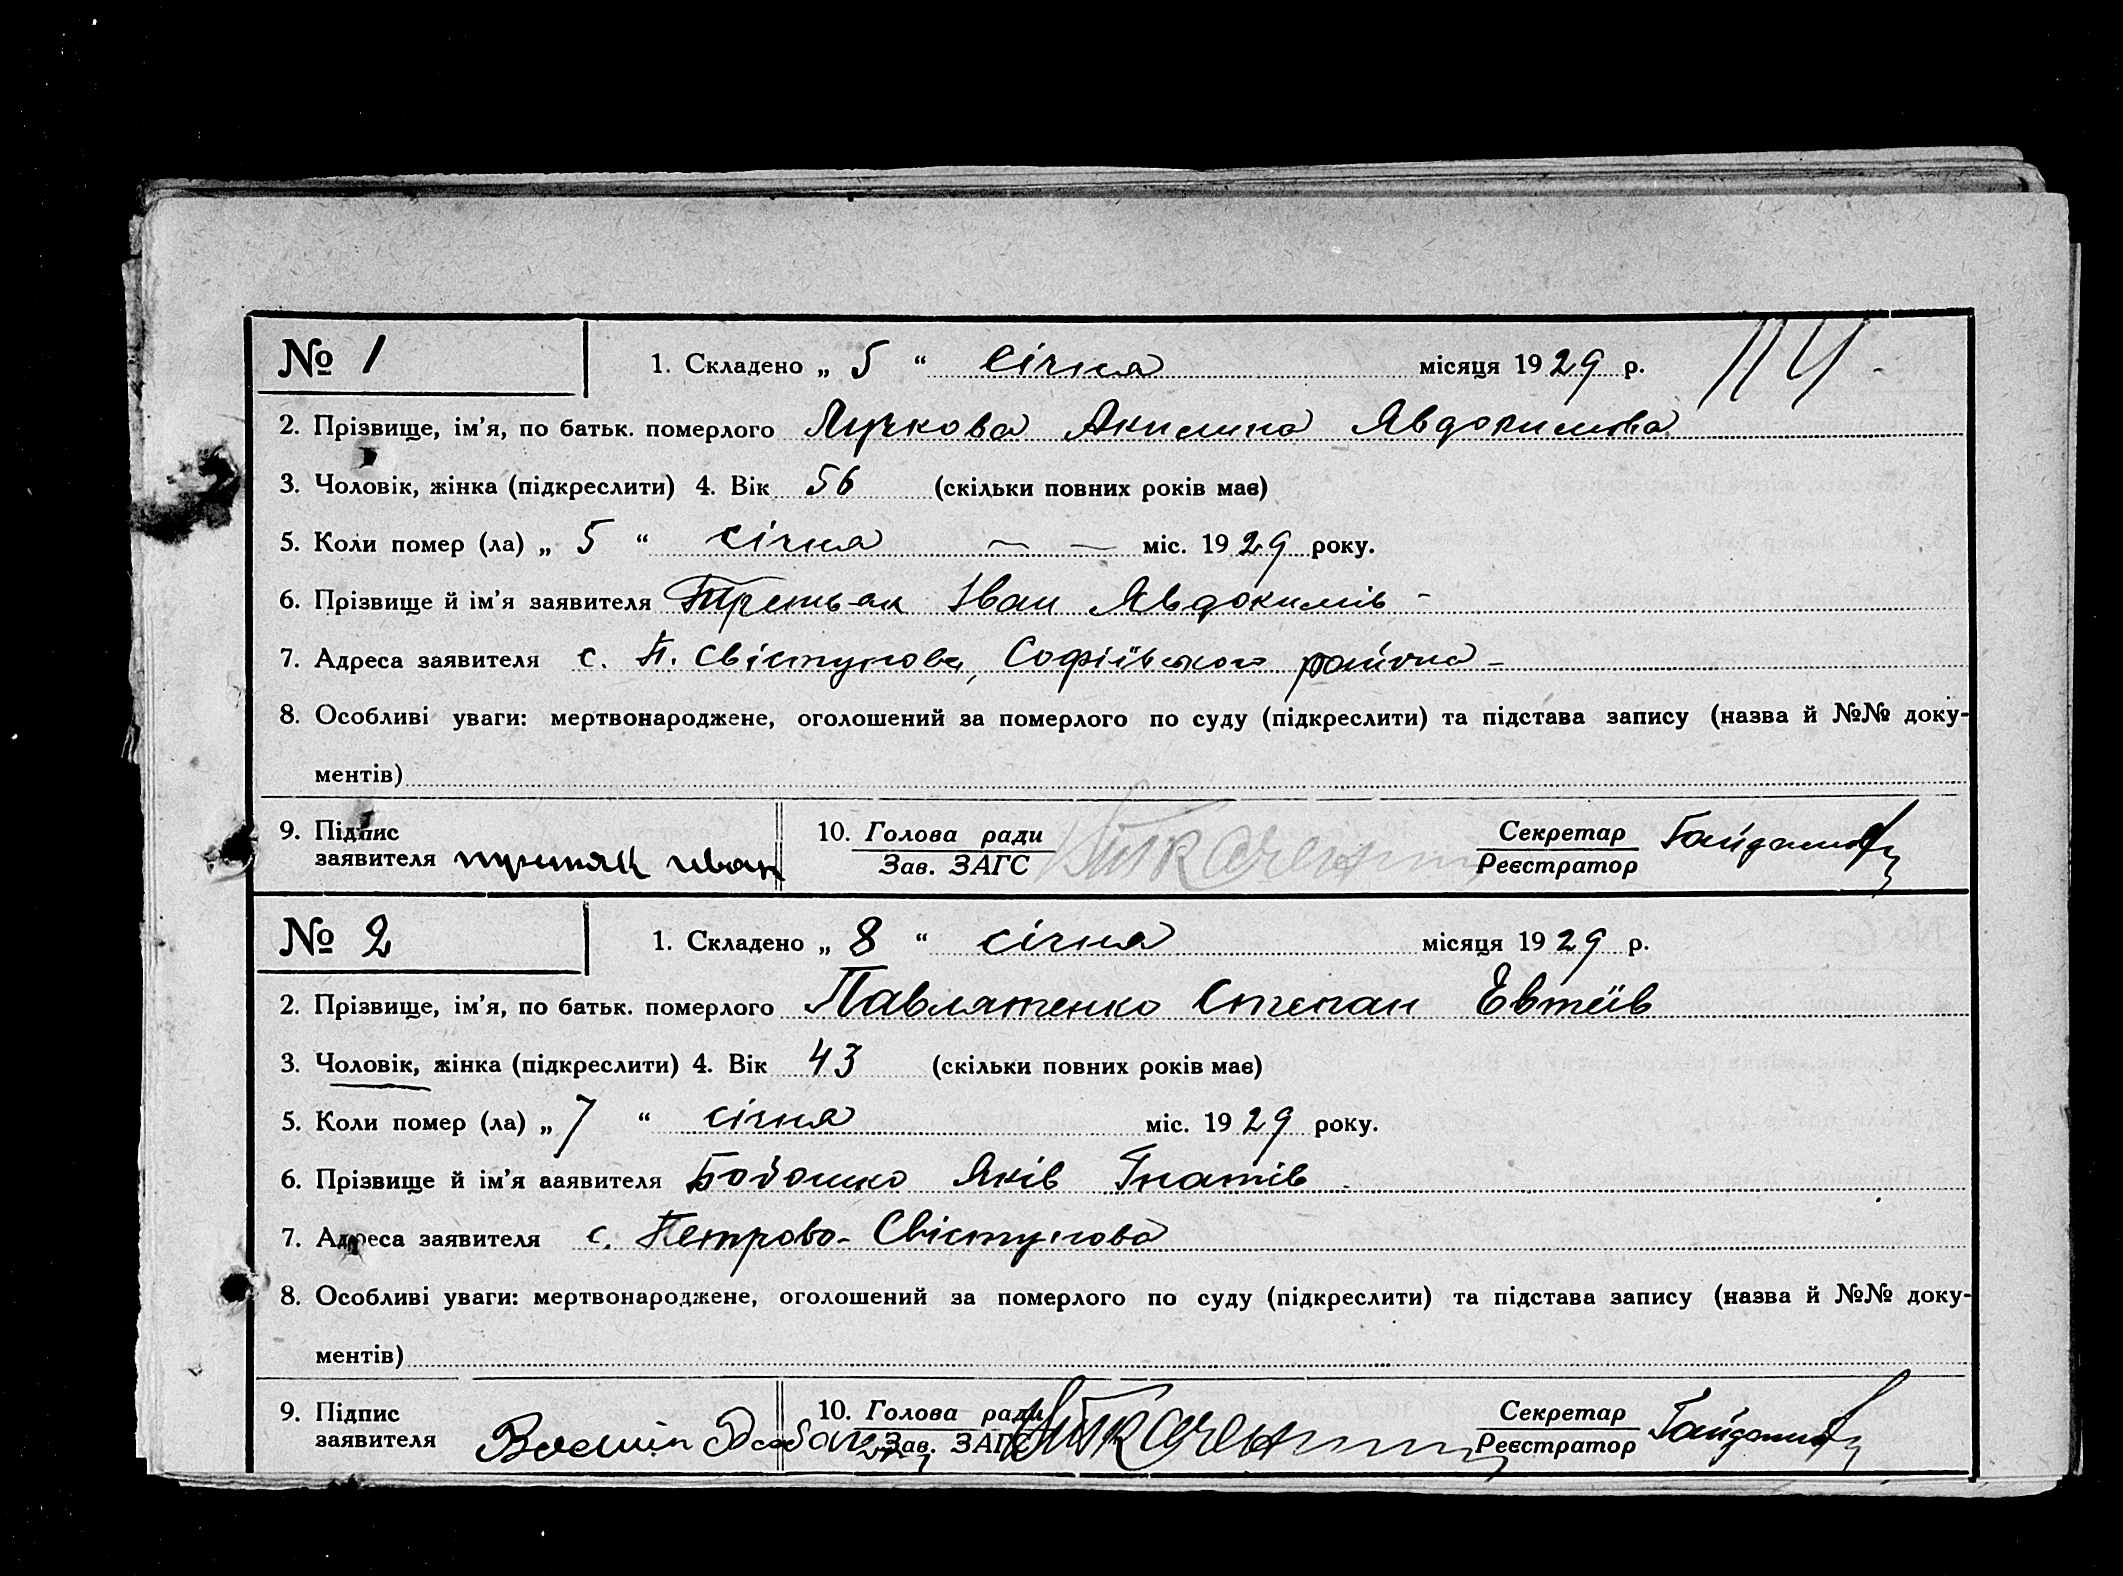 № 1 1. Складено „ 5 “ Січня місяця 1929 р. 114
2. Прізвище, ім'я, по батьк. померлого Лучкова Акилина Явдокимова
3. Чоловік, жінка (підкреслити) 4. Вік 56 (скільки повних років має)
5. Коли помер (ла) „ 5 “ січня — — міс. 1929 року.
6. Прізвище й ім'я заявителя Третьяк Іван Явдокимів -
7. Адреса заявителя с. П. Свістунова, Софіївського району -
8. Особливі уваги: мертвонароджене, оголошений за померлого по суду (підкреслити) та підстава запису (назва й №№ доку-
ментів)
9. Підпис заявителя третяк иван 10. Голова ради Секретар
Зав. ЗАГС Реєстратор
№ 2 1. Складено „ 8 “ січня місяця 1929 р.
2. Прізвище, ім'я, по батьк. померлого Павлятенко Степан Евтеїв
3. Чоловік, жінка (підкреслити) 4. Вік 43 (скільки повних років має)
5. Коли помер (ла) „ 7 “ січня міс. 1929 року.
6. Прізвище й ім'я заявителя Яків Гнатів
7. Адреса заявителя с. Петрово-Свістунова
8. Особливі уваги: мертвонароджене, оголошений за померлого по суду (підкреслити) та підстава запису (назва й №№ доку-
ментів)
9. Підпис заявителя 10. Голова ради Секретар
Зав. ЗАГС Реєстратор